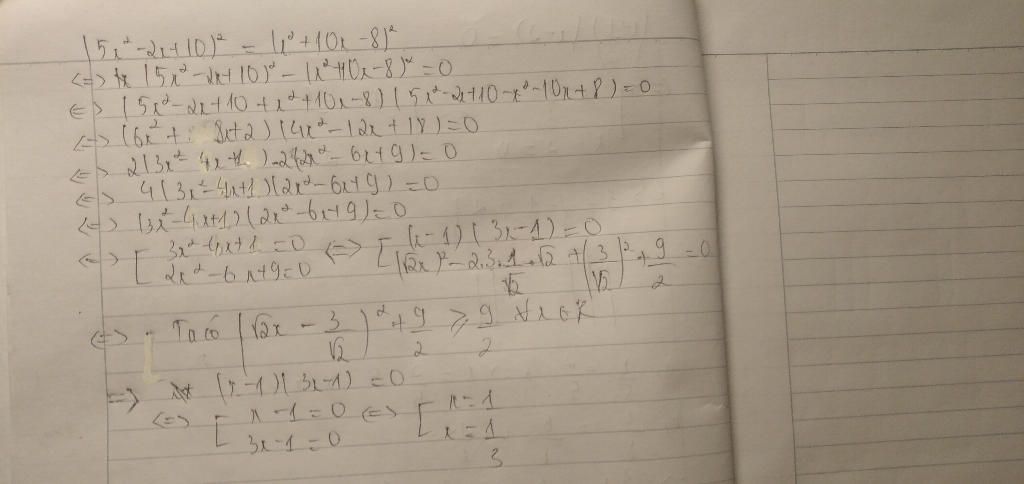 (5x² - 2x + 10)² = (x² + 10x - 8)²
<=> (5x² - 2x + 10)² - (x² + 10x - 8)² = 0
<=> (5x² - 2x + 10 + x² + 10x - 8)(5x² - 2x + 10 - x² - 10x + 8) = 0
<=> (6x² + 8x + 2)(4x² - 12x + 18) = 0
<=> 2(3x² - 4x + 1).2(2x² - 6x + 9) = 0
<=> 4(3x² - 4x + 1)(2x² - 6x + 9) = 0
<=> (3x² - 4x + 1)(2x² - 6x + 9) = 0
<=> [ 3x² - 4x + 1 = 0 <=> [ (x - 1)(3x - 1) = 0
2x² - 6x + 9 = 0 (√2x)² - 2.3.1/√2.√2 + (3/√2)² + 9/2 = 0
<=> Ta có (√2x - 3/√2)² + 9/2 ≥ 9/2 ∀x∈R
=> (x - 1)(3x - 1) = 0
<=> [ x - 1 = 0 <=> [ x = 1
3x - 1 = 0 x = 1/3